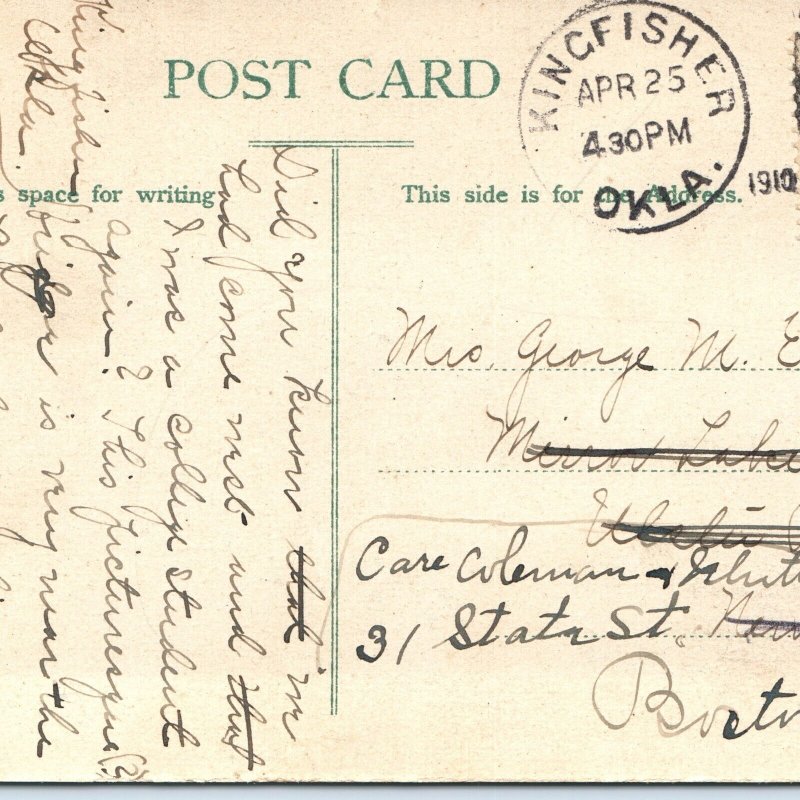 POST CARD
KINGFISHER
APR 25
4 30 PM
OKLA.
1910
s space for writing
This side is for the Address.
Kingfisher
Okla.
Did you know that we
had come west and that
I was a college student
again? This picturesque (?)
bridge is very near the
Mrs. George M. E
Mirror Lake
Care Coleman &
31 State St.
Boston